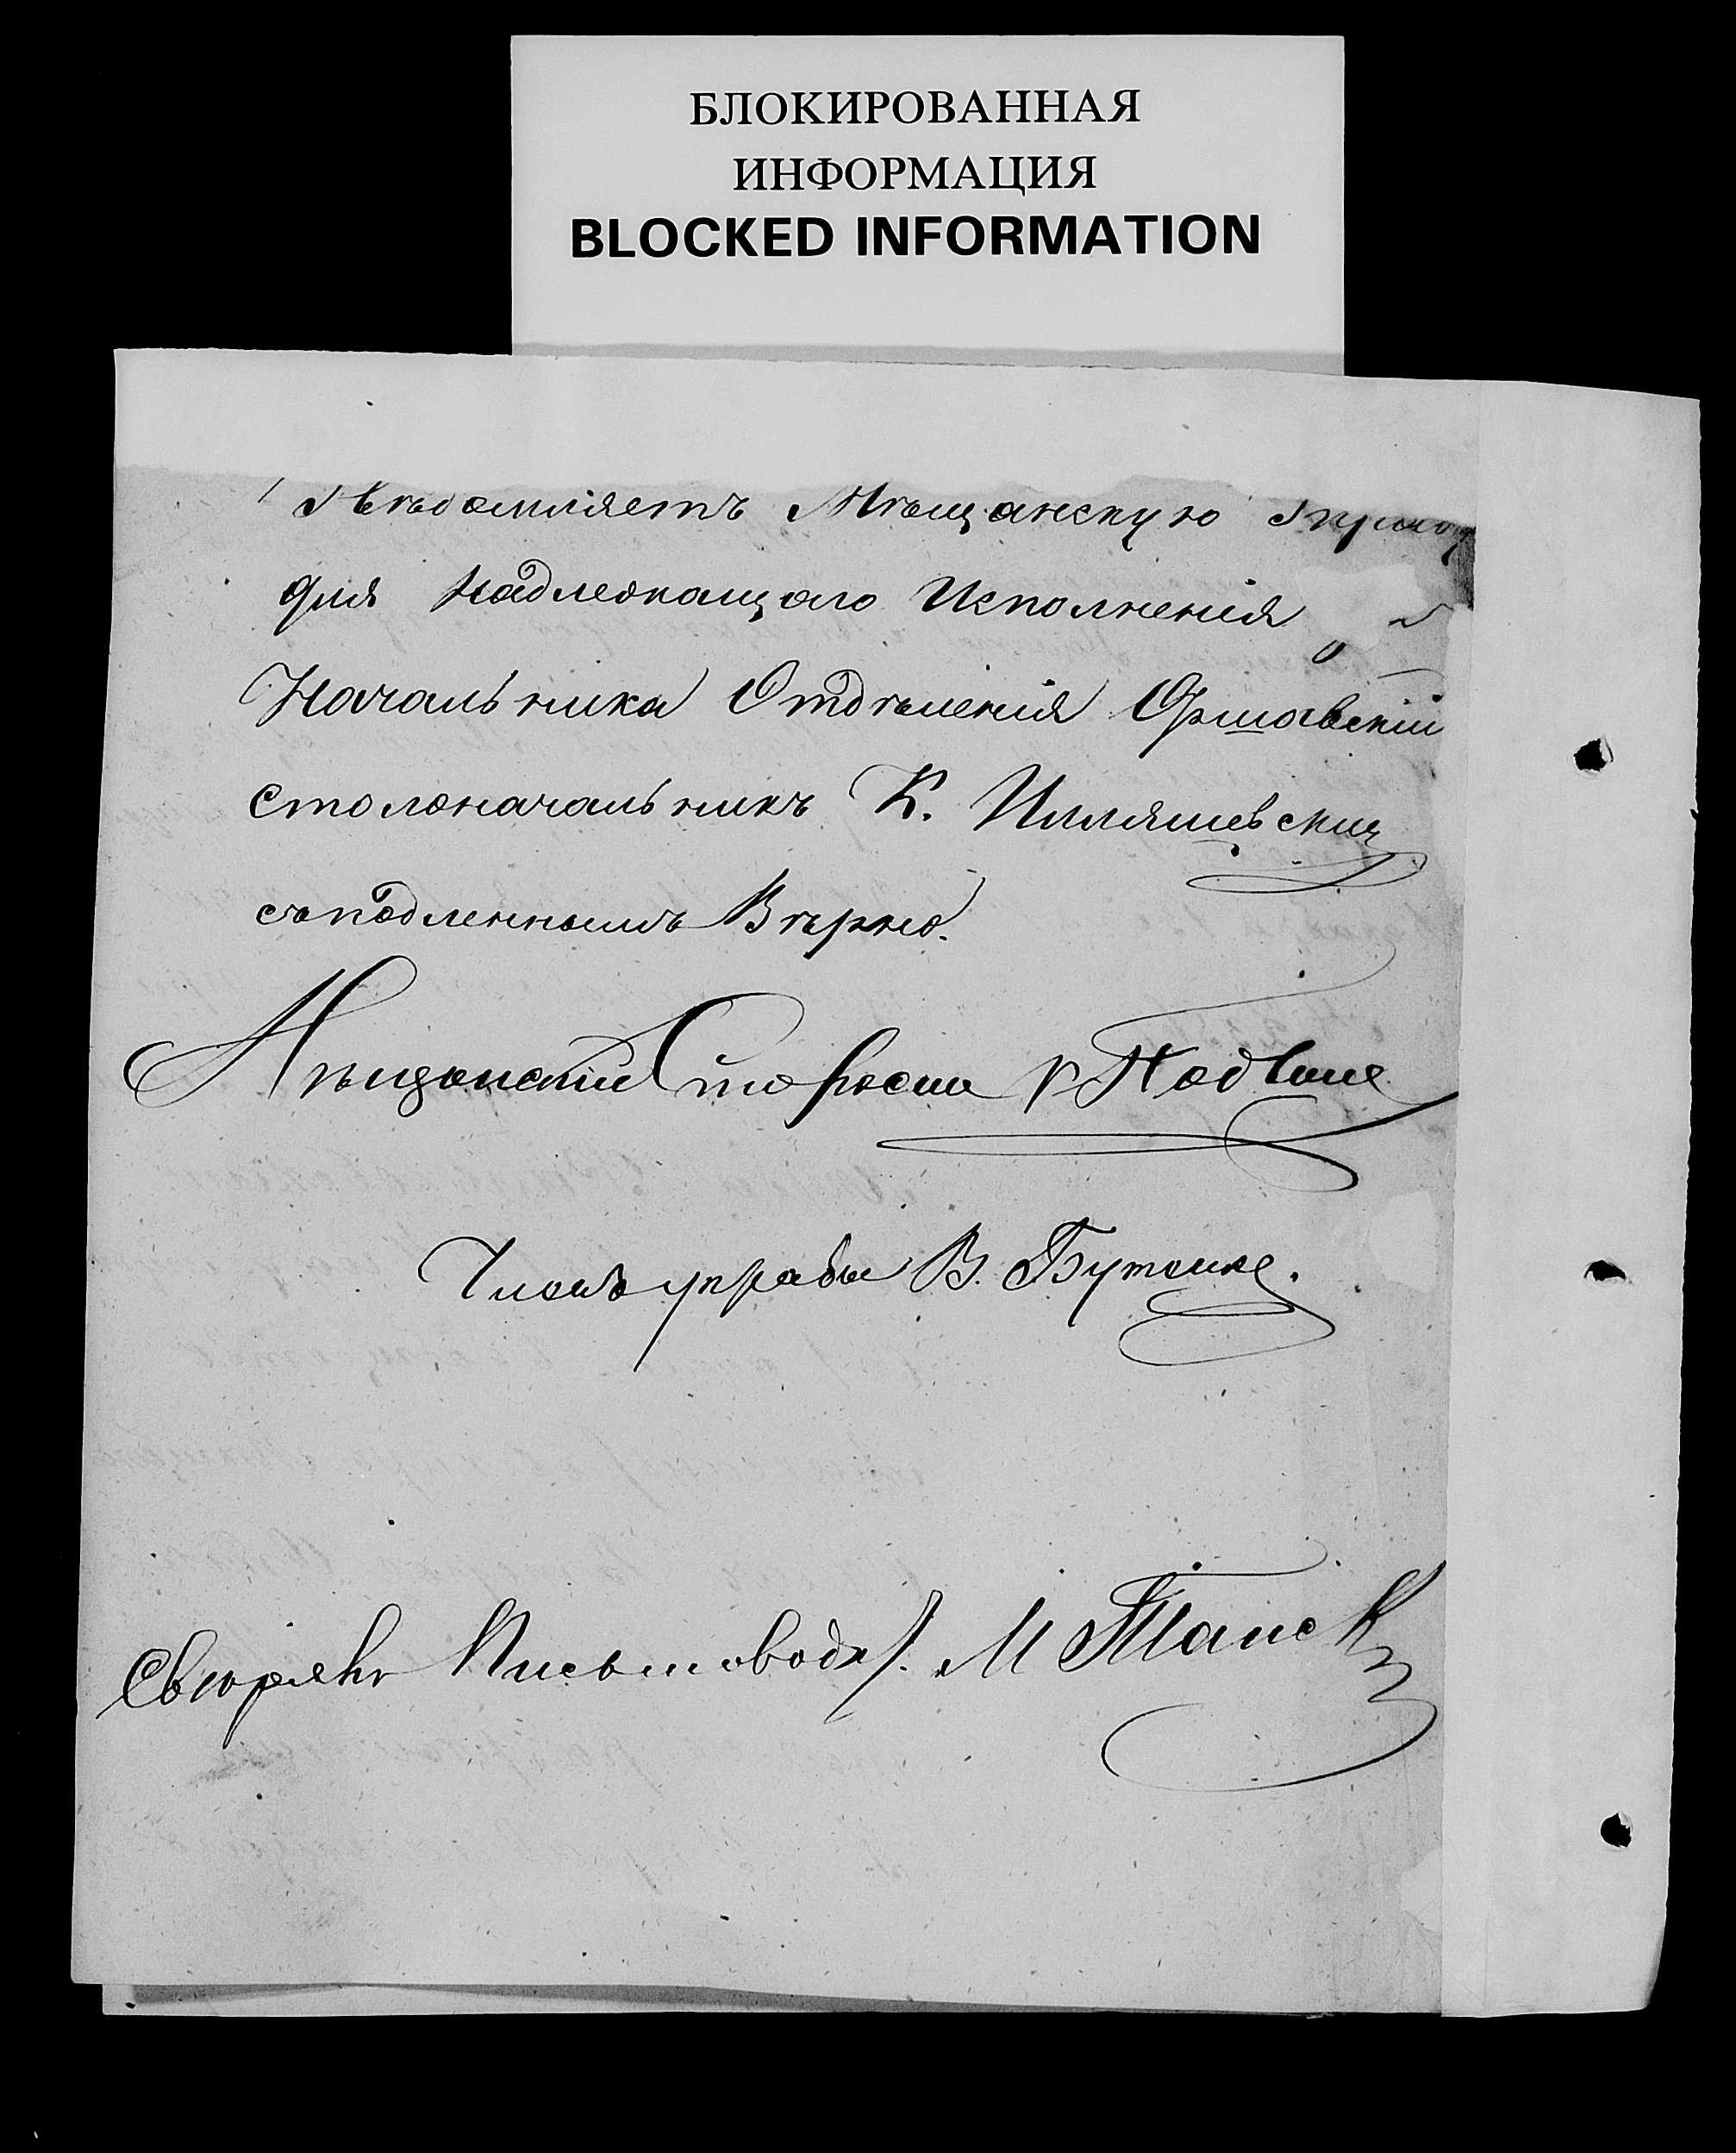 БЛОКИРОВАННАЯ
ИНФОРМАЦИЯ
BLOCKED INFORMATION
Увѣдомляетъ Мѣщанскую Управу
для Надлежащаго Исполненія
Начальника Отдѣленія Оршавскій
столоначальникъ К. Илляшевскій
съ подленнымъ Вѣрно.
Мѣщанскій Староста
Членъ управы В. Бутенко.
Свѣрялъ Письмоводит. М